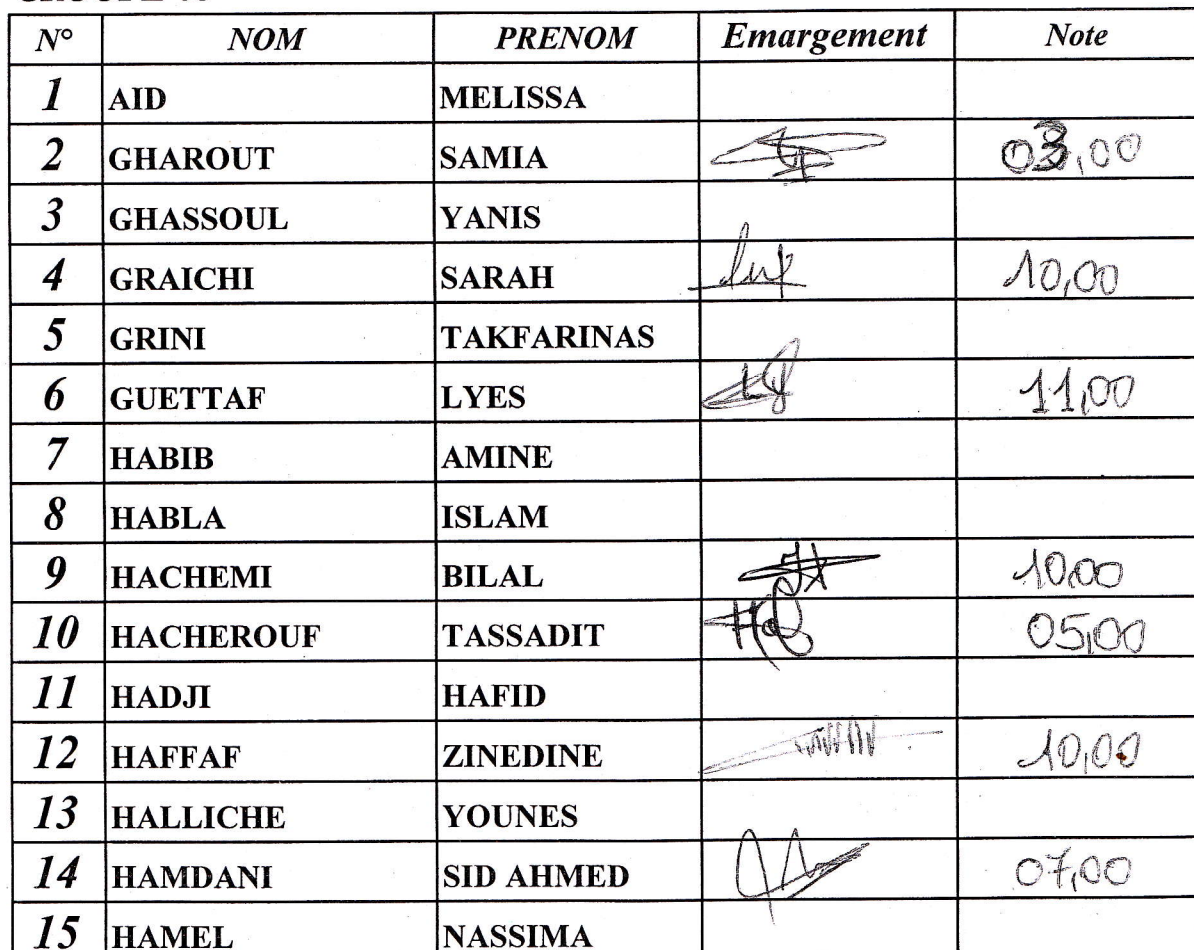 N° NOM PRENOM Emargement Note
1 AID MELISSA
2 GHAROUT SAMIA 03,00
3 GHASSOUL YANIS
4 GRAICHI SARAH 10,00
5 GRINI TAKFARINAS
6 GUETTAF LYES 11,00
7 HABIB AMINE
8 HABLA ISLAM
9 HACHEMI BILAL 10,00
10 HACHEROUF TASSADIT 05,00
11 HADJI HAFID
12 HAFFAF ZINEDINE 10,00
13 HALLICHE YOUNES
14 HAMDANI SID AHMED 07,00
15 HAMEL NASSIMA